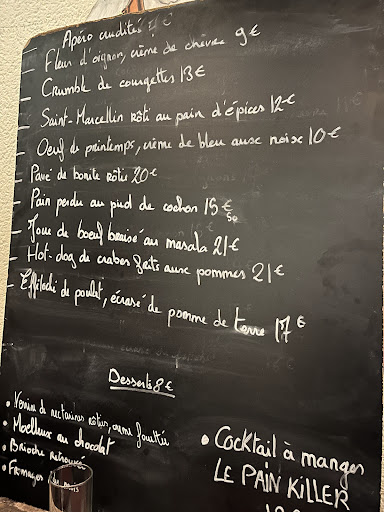 Apéro crudités 7 €
- Fleur d'oignon, crème de chèvre 9 €
- Crumble de courgettes 13 €
- Saint-Marcellin rôti au pain d'épices 12 €
- Oeuf de printemps, crème de bleu aux noix 10 €
- Pavé de bonite rôtie 20 €
- Pain perdu au pied de cochon 15 €
50
- Joue de boeuf braisé au masala 21 €
- Hot-dog de crabes frits aux pommes 21 €
- Effiloché de poulet, écrasé de pomme de terre 17 €
Desserts 8 €
• Verrine de nectarines rôties, crème fouettée
• Moelleux au chocolat
• Brioche retrouvée
• Fromages du mois
• Cocktail à manger
LE PAIN KILLER